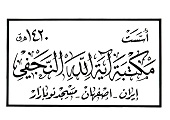 أسّست ١٤٢٠ ه‍.ق
مكتبة آية الله النجفي
ايران - اصفهان - مسجد نو بازار